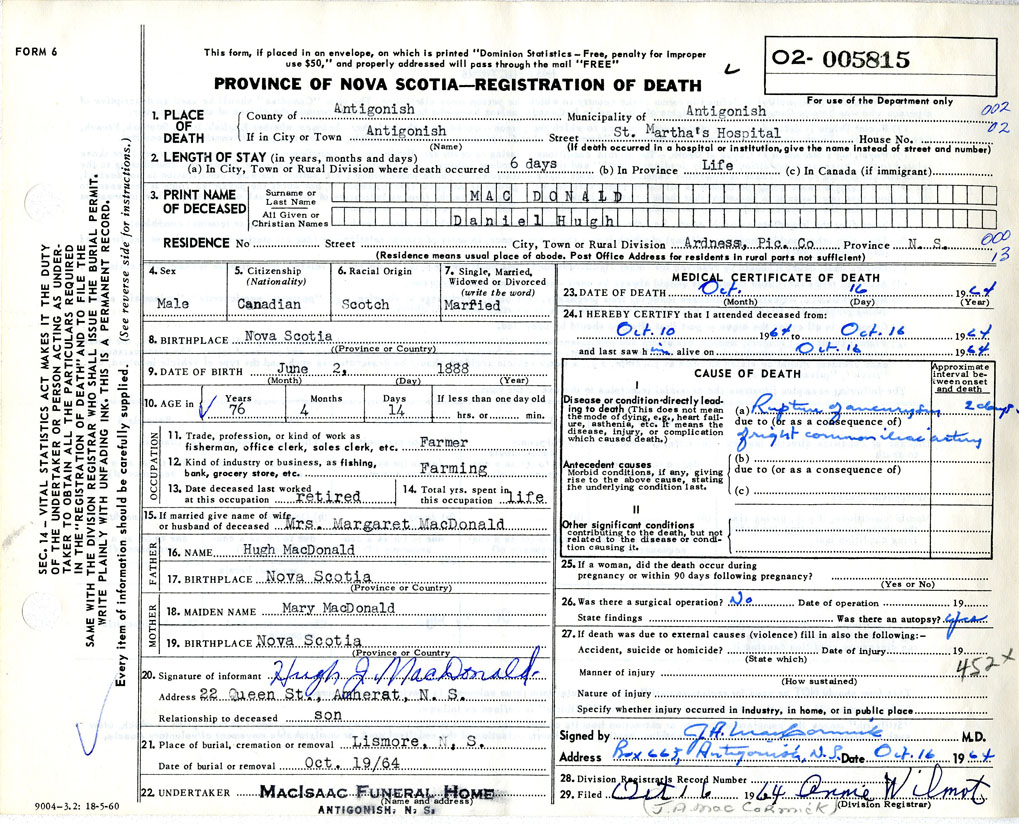 FORM 6
This form, if placed in an envelope, on which is printed "Dominion Statistics – Free, penalty for improper
use $50," and properly addressed will pass through the mail "FREE"
PROVINCE OF NOVA SCOTIA—REGISTRATION OF DEATH
02- 005815
For use of the Department only
002
02
1. PLACE OF DEATH
County of Antigonish Municipality of Antigonish
If in City or Town Antigonish Street St. Martha's Hospital House No.
(Name) (If death occurred in a hospital or institution, give the name instead of street and number)
2. LENGTH OF STAY (in years, months and days)
(a) In City, Town or Rural Division where death occurred 6 days (b) In Province Life (c) In Canada (if immigrant)
3. PRINT NAME OF DECEASED
Surname or Last Name MAC DONALD
All Given or Christian Names Daniel Hugh
RESIDENCE No Street City, Town or Rural Division Ardness, Pic. Co Province N. S.
(Residence means usual place of abode. Post Office Address for residents in rural parts not sufficient)
000
13
4. Sex
Male
5. Citizenship
(Nationality)
Canadian
6. Racial Origin
Scotch
7. Single, Married, Widowed or Divorced
(write the word)
Married
8. BIRTHPLACE Nova Scotia
((Province or Country)
9. DATE OF BIRTH June 2, 1888
(Month) (Day) (Year)
10. AGE in Years Months Days If less than one day old
76 4 14 hrs. or min.
OCCUPATION
11. Trade, profession, or kind of work as
fisherman, office clerk, sales clerk, etc. Farmer
12. Kind of industry or business, as fishing,
bank, grocery store, etc. Farming
13. Date deceased last worked
at this occupation retired
14. Total yrs. spent in
this occupation life
15. If married give name of wife
or husband of deceased Mrs. Margaret MacDonald
FATHER
16. NAME Hugh MacDonald
17. BIRTHPLACE Nova Scotia
(Province or Country)
MOTHER
18. MAIDEN NAME Mary MacDonald
19. BIRTHPLACE Nova Scotia
(Province or Country
20. Signature of informant Hugh J. MacDonald
Address 22 Queen St., Amherst, N. S.
Relationship to deceased son
21. Place of burial, cremation or removal Lismore, N. S.
Date of burial or removal Oct. 19/64
22. UNDERTAKER MACISAAC FUNERAL HOME
(Name and address)
ANTIGONISH, N. S.
MEDICAL CERTIFICATE OF DEATH
23. DATE OF DEATH Oct. 16 1964
(Month) (Day) (Year)
24. I HEREBY CERTIFY that I attended deceased from:
Oct. 10 1964 to Oct. 16 1964
and last saw him alive on Oct. 16 1964
CAUSE OF DEATH
Approximate interval between onset and death
I
Disease or condition directly leading to death (This does not mean
the mode of dying, e.g., heart failure, asthenia, etc. It means the
disease, injury, or complication
which caused death.)
(a) Rupture of aneurysm 2 days
due to (or as a consequence of)
of right common iliac artery
Antecedent causes
Morbid conditions, if any, giving
rise to the above cause, stating
the underlying condition last.
(b)
due to (or as a consequence of)
(c)
II
Other significant conditions
contributing to the death, but not
related to the disease or condition
causing it.
25. If a woman, did the death occur during
pregnancy or within 90 days following pregnancy?
(Yes or No)
26. Was there a surgical operation? No Date of operation 19
State findings Was there an autopsy?
27. If death was due to external causes (violence) fill in also the following:–
Accident, suicide or homicide? Date of injury 19
(State which)
Manner of injury
(How sustained)
452x
Nature of injury
Specify whether injury occurred in industry, in home, or in public place
Signed by J.A. MacCormick M.D.
Address Box 668, Antigonish, N.S. Date Oct. 16 1964
28. Division Registrar's Record Number
29. Filed Oct 16 1964 Annie Wilmot
(J. A. MacCormick) (Division Registrar)
SEC. 14 – VITAL STATISTICS ACT MAKES IT THE DUTY
OF THE UNDERTAKER OR PERSON ACTING AS UNDER-
TAKER TO OBTAIN ALL THE PARTICULARS REQUIRED
IN THE "REGISTRATION OF DEATH" AND TO FILE THE
SAME WITH THE DIVISION REGISTRAR WHO SHALL ISSUE THE BURIAL PERMIT.
WRITE PLAINLY WITH UNFADING INK. THIS IS A PERMANENT RECORD.
Every item of information should be carefully supplied. (See reverse side for instructions.)
9004-3.2: 18-5-60